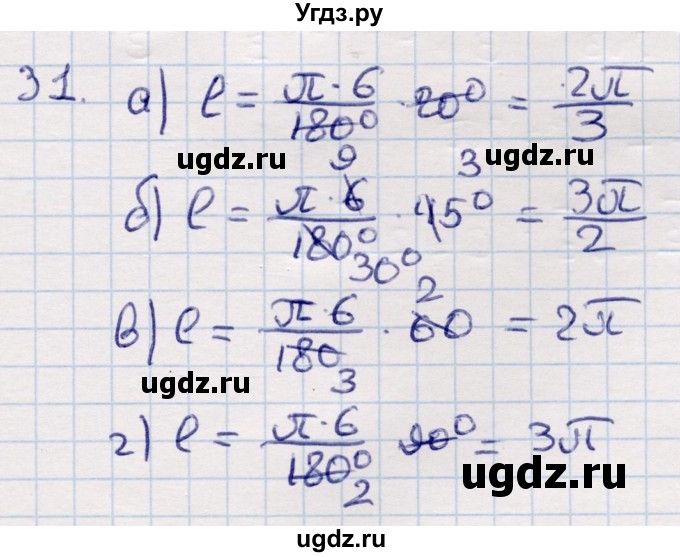 Угдз.ру
31. а) l = π·6/180° · 20° = 2π/3
9
ugdz.ru ugdz.ru
б) l = π·6/180° · 45° = 3π/2
3
30°
в) l = π·6/180 · 60 = 2π
2
3
ugdz.ru
г) l = π·6/180° 90° = 3π
2
ugdz.ru
ugdz.ru